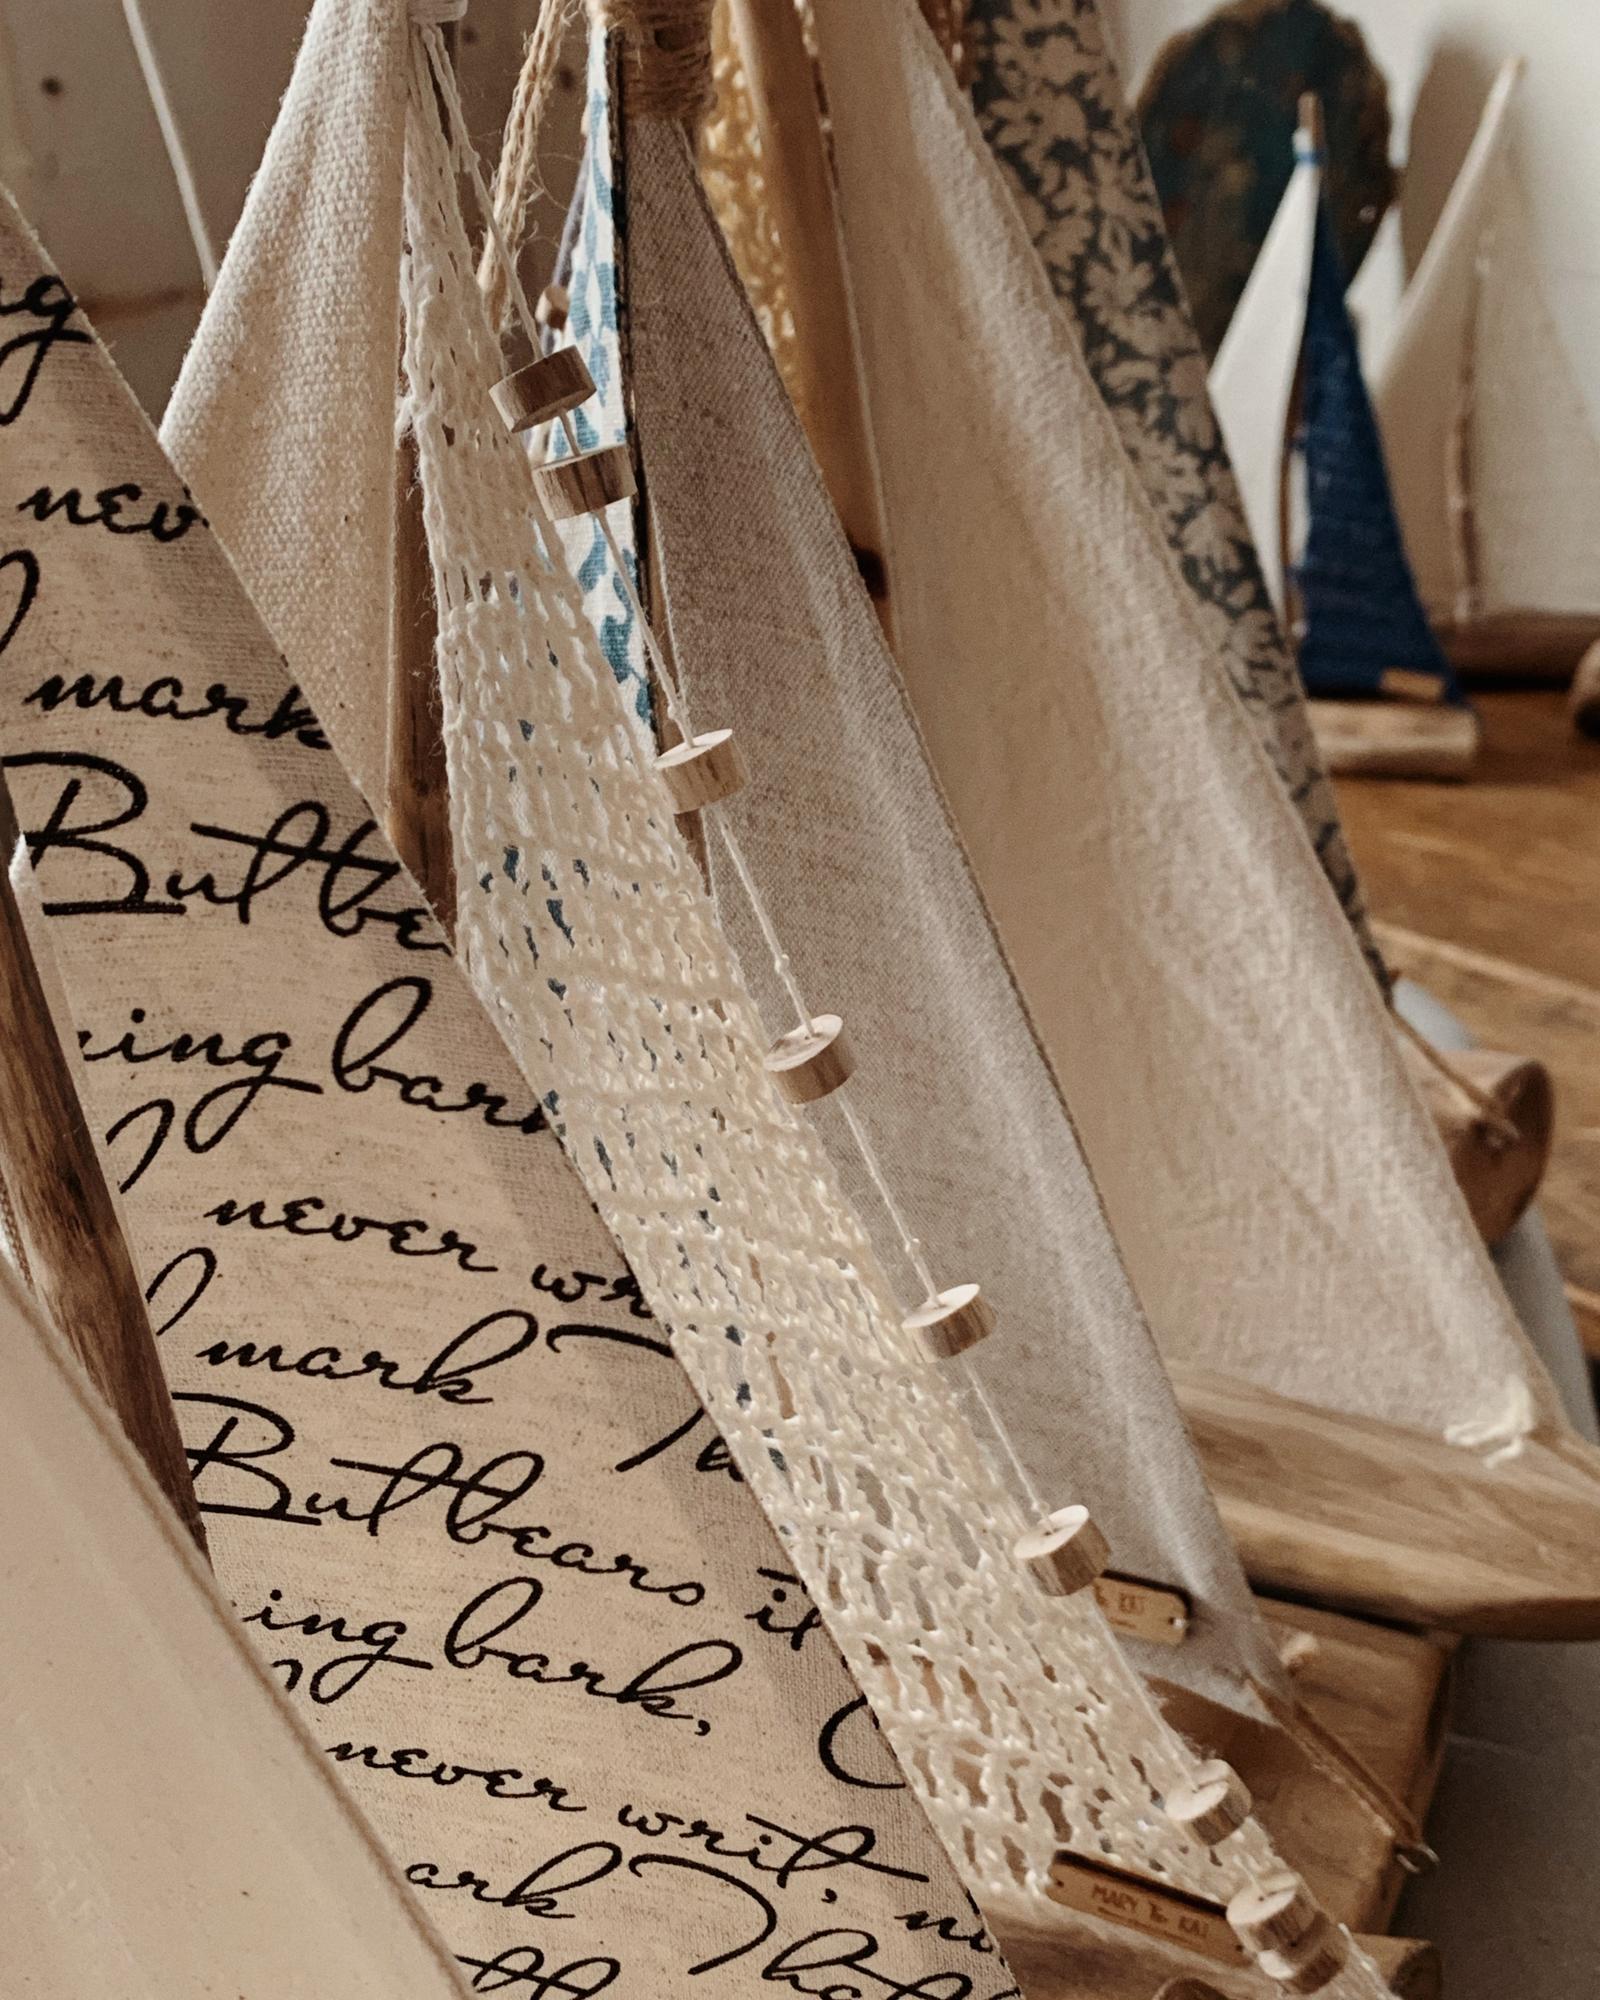 mark
But be
ing bark
never wr
mark Th
But bears it
ing bark,
never writ, n
ark That
MARY & KAI